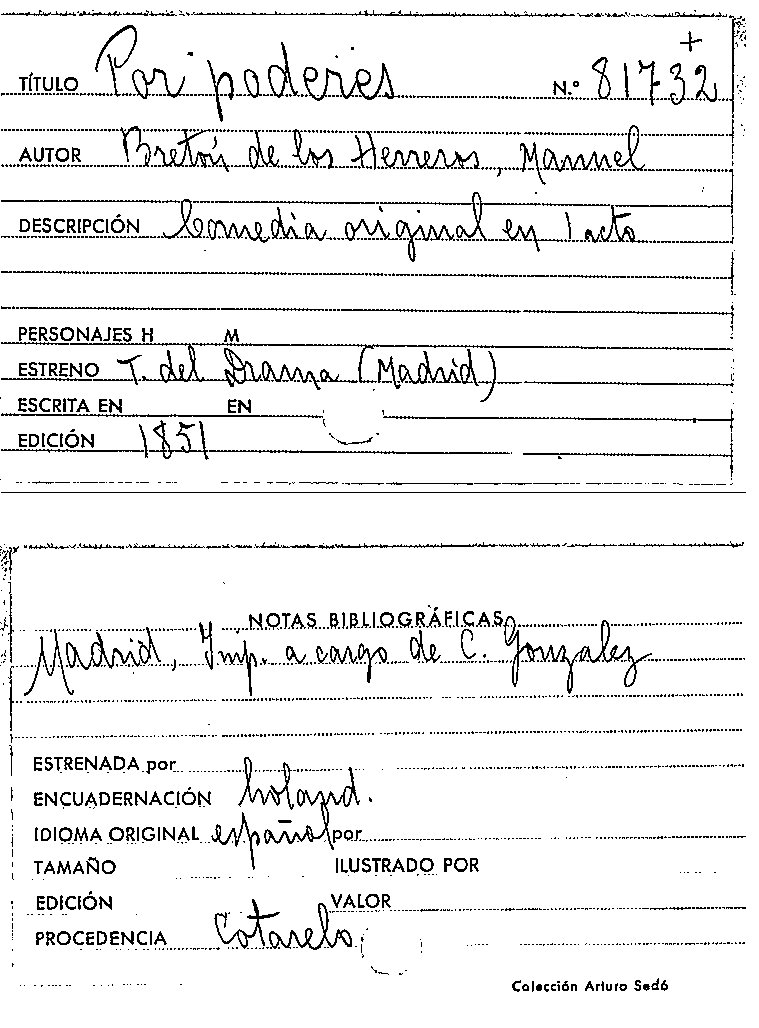 +
TÍTULO Por poderes N.º 81732
AUTOR Bretón de los Herreros, Manuel
DESCRIPCIÓN Comedia original en 1 acto
PERSONAJES H M
ESTRENO T. del Drama (Madrid)
ESCRITA EN EN
EDICIÓN 1851
NOTAS BIBLIOGRÁFICAS
Madrid, Imp. a cargo de C. Gonzalez
ESTRENADA por
ENCUADERNACIÓN holand.
IDIOMA ORIGINAL español por
TAMAÑO ILUSTRADO POR
EDICIÓN VALOR
PROCEDENCIA Cotarelo
Colección Arturo Sedó